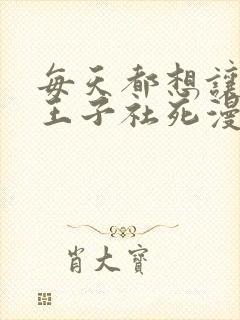 每天都想讓
王子社死漫
肖大寶